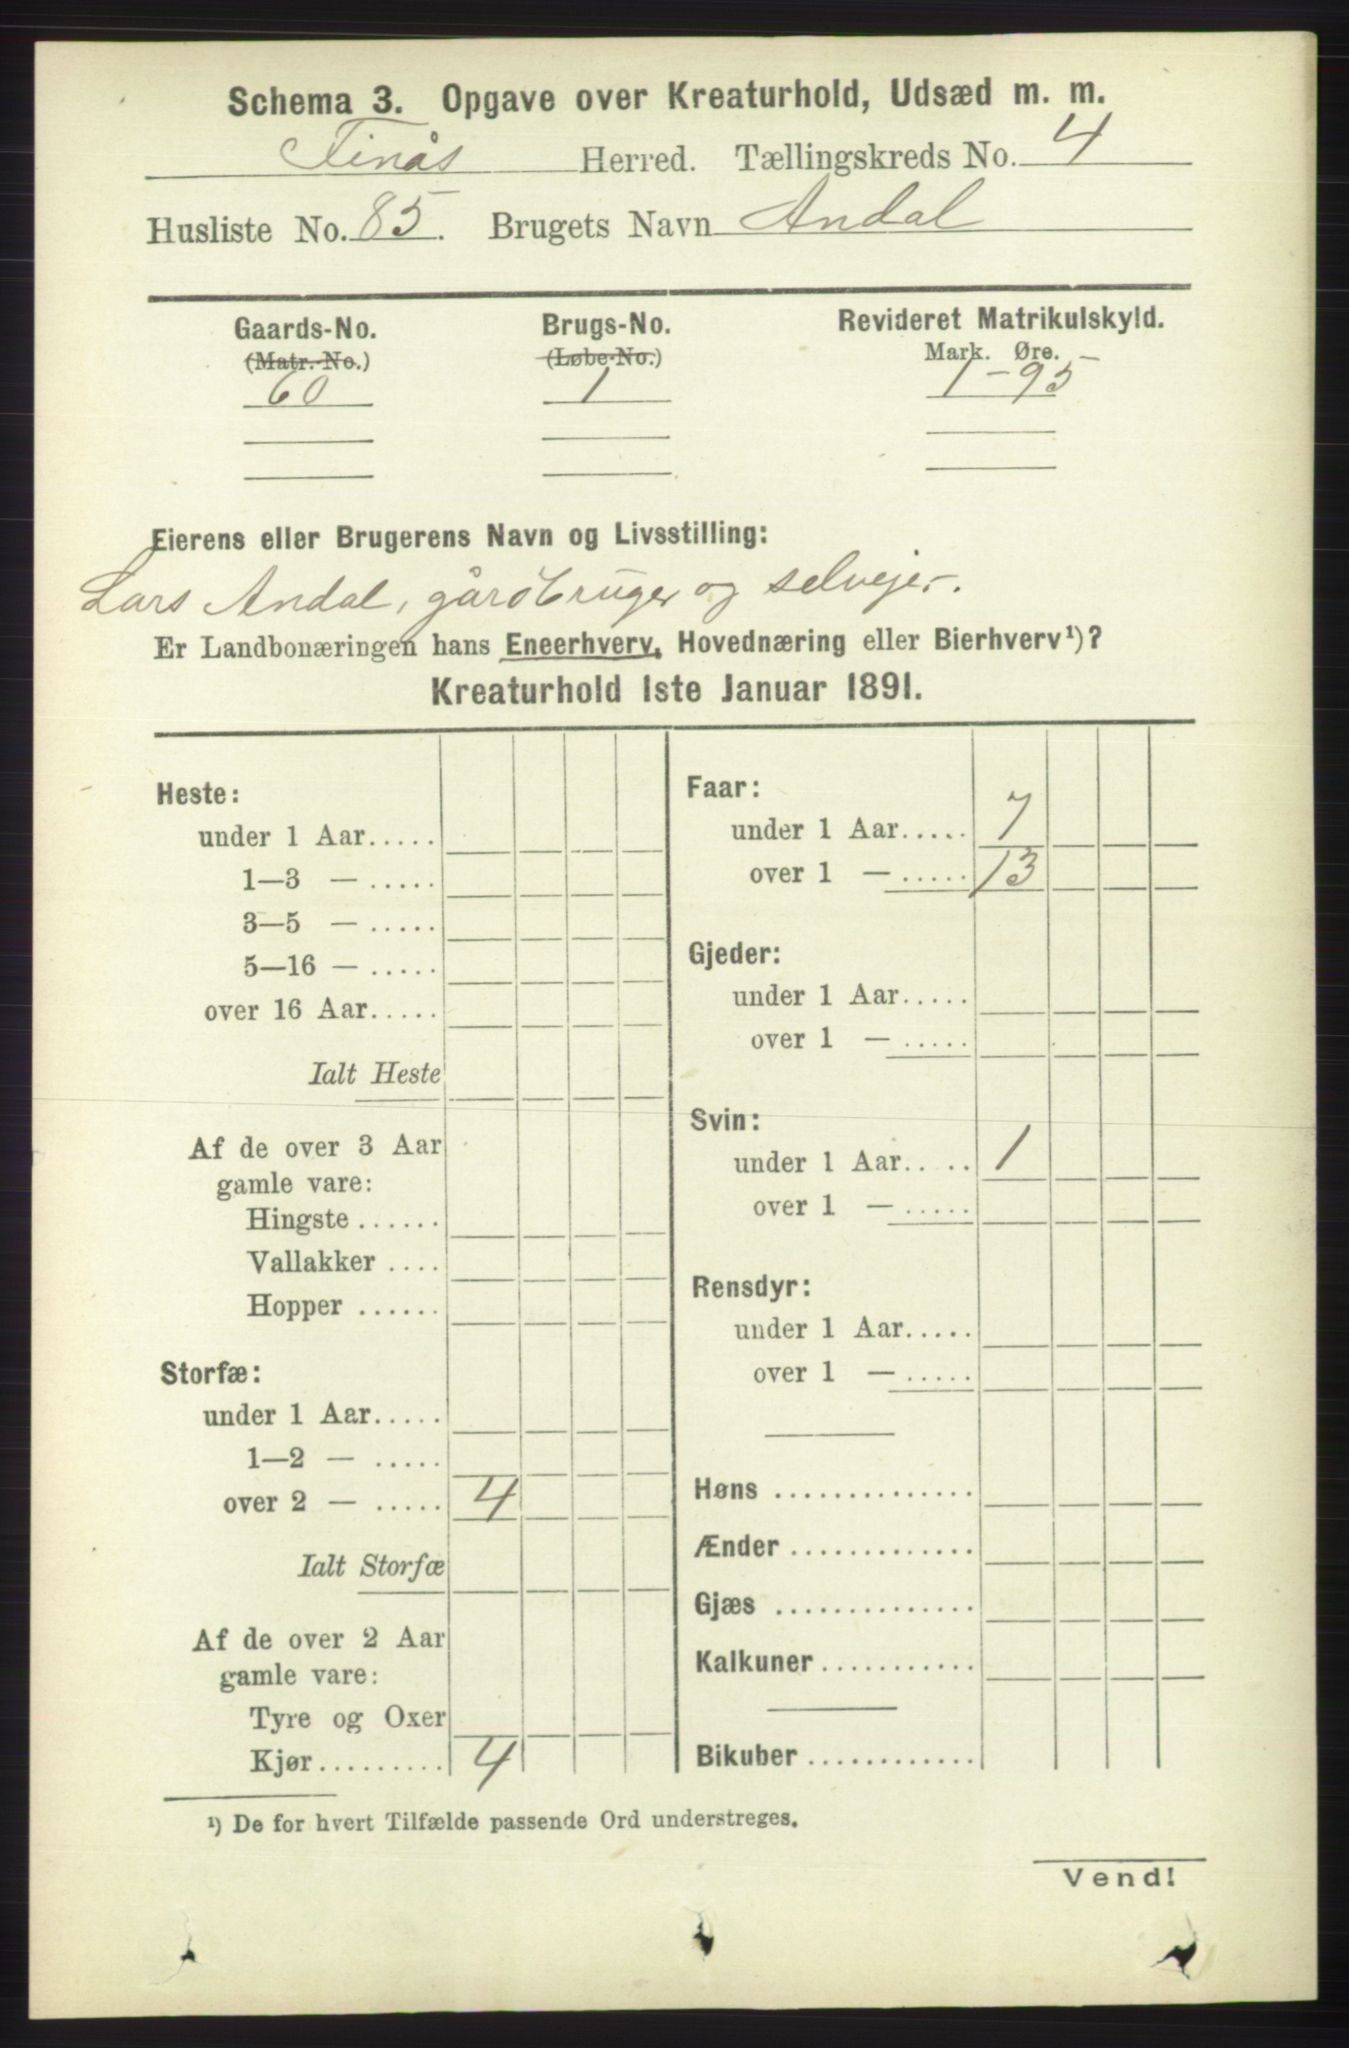 Schema 3. Opgave over Kreaturhold, Udsæd m. m.
Finås Herred. Tællingskreds No. 4
Husliste No. 85. Brugets Navn Andal
Gaards-No. Brugs-No. Revideret Matrikulskyld.
(Matr.-No.) (Løbe-No.) Mark. Øre.
60 1 1-95
Eierens eller Brugerens Navn og Livsstilling:
Lars Andal, gårdbruger og selvejer.
Er Landbonæringen hans Eneerhverv, Hovednæring eller Bierhverv¹)?
Kreaturhold 1ste Januar 1891.
Heste:
under 1 Aar.....
1—3 — .....
3—5 — .....
5—16 — .....
over 16 Aar.....
Ialt Heste
Af de over 3 Aar
gamle vare:
Hingste ......
Vallakker ....
Hopper ......
Storfæ:
under 1 Aar.....
1—2 — .....
over 2 — ..... 4
Ialt Storfæ
Af de over 2 Aar
gamle vare:
Tyre og Oxer
Kjør......... 4
Faar:
under 1 Aar..... 7
over 1 — ..... 13
Gjeder:
under 1 Aar.....
over 1 — .....
Svin:
under 1 Aar..... 1
over 1 — .....
Rensdyr:
under 1 Aar.....
over 1 — .....
Høns ..............
Ænder .............
Gjæs ..............
Kalkuner...........
Bikuber ............
¹) De for hvert Tilfælde passende Ord understreges.
Vend!